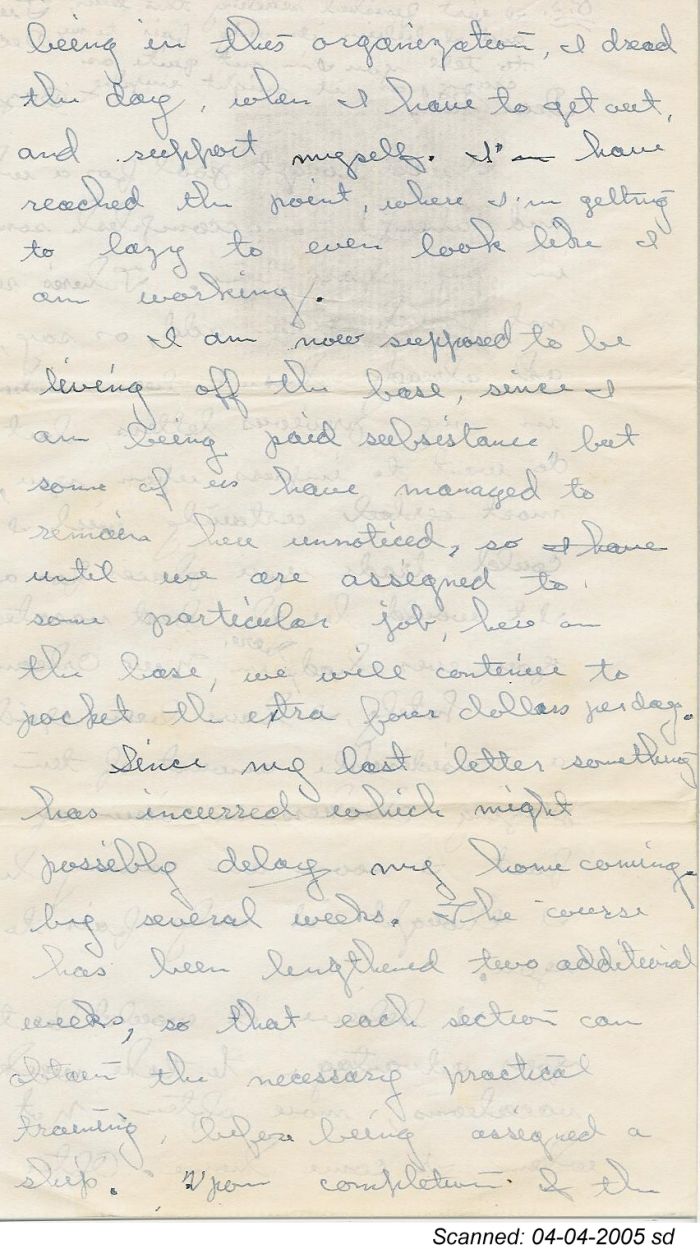 being in this organization, I dread
the day, when I have to get out,
and support myself. I'm have
reached the point, where I'm getting
to lazy to even look like I
am working.
I am now supposed to be
living off the base, since I
am being paid subsistance, but
some of us have managed to
remain here unnoticed, so I have
until we are assigned to
some particular job, here on
the base, we will continue to
pocket the extra four dollars per day.
Since my last letter something
has incurred which might
possibly delay my homecoming.
by several weeks. The course
has been lengthened two additional
weeks, so that each section can
obtain the necessary practical
training, before being assigned a
ship. Upon completion of the
Scanned: 04-04-2005 sd